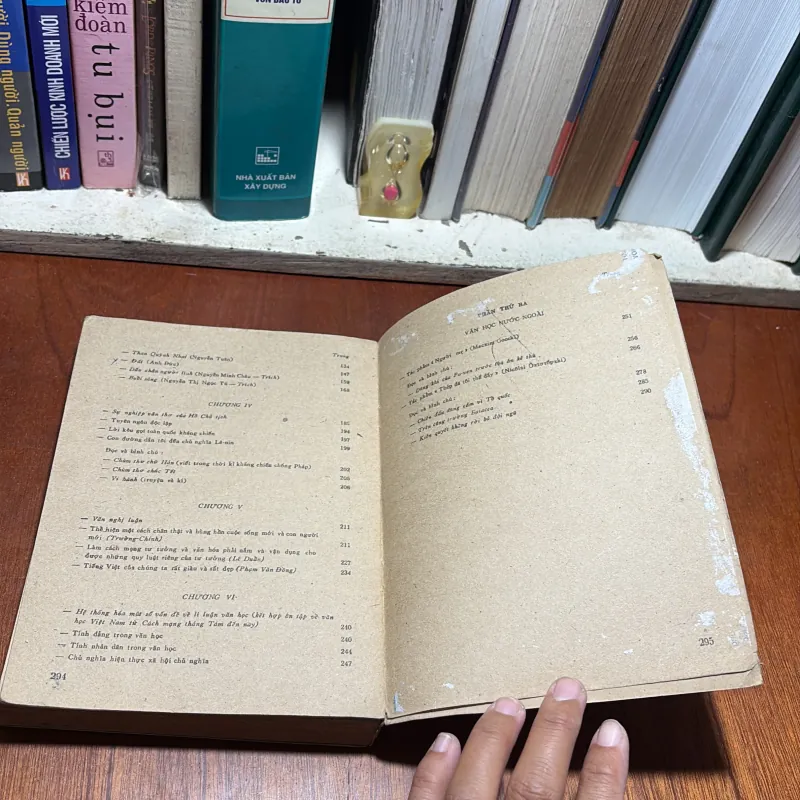 Dùng người. Quản người
CHIẾN LƯỢC KINH DOANH MỚI
kiếm
đoàn
tu bụi
VỐN ĐẦU TƯ
NHÀ XUẤT BẢN
XÂY DỰNG
Trang
— Theo Quỳnh Nhai (Nguyễn Tuân)
— Đất (Anh Đức) 154
— Dấu chân người lính (Nguyễn Minh Châu — Trích) 157
— Buổi sáng (Nguyễn Thị Ngọc Tú — Trích)
CHƯƠNG IV
— Sự nghiệp văn thơ của Hồ Chủ tịch 185
— Tuyên ngôn độc lập 194
— Lời kêu gọi toàn quốc kháng chiến 197
— Con đường dẫn tôi đến chủ nghĩa Lê-nin 199
Đọc và bình chú :
— Chùm thơ chữ Hán (viết trong thời kì kháng chiến chống Pháp) 203
— Chùm thơ chúc Tết 205
— Vi hành (truyện và kí) 208
CHƯƠNG V
— Văn nghị luận 211
— Thể hiện một cách chân thật và hùng hồn cuộc sống mới và con người
mới (Trường-Chinh) 211
— Làm cách mạng tư tưởng và văn hóa phải nắm và vận dụng cho
được những quy luật riêng của tư tưởng (Lê Duẩn) 227
— Tiếng Việt của chúng ta rất giàu và rất đẹp (Phạm Văn Đồng) 234
CHƯƠNG VI
— Hệ thống hóa một số vấn đề về lí luận văn học (kết hợp ôn tập về văn
học Việt Nam từ Cách mạng tháng Tám đến nay) 240
— Tính đảng trong văn học 240
— Tính nhân dân trong văn học 244
— Chủ nghĩa hiện thực xã hội chủ nghĩa 247
294
PHẦN THỨ BA
VĂN HỌC NƯỚC NGOÀI 251
— Tác phẩm « Người mẹ » (Macxim Gorki) 256
Đọc và bình chú : 266
— Tác phẩm « Thép đã tôi thế đấy » (Nicôlai Ôxtơrốpxki)
Đọc và bình chú : 278
— Chiến đấu dũng cảm vì Tổ quốc 285
— Trên công trường 290
— Kiên quyết không rời bỏ đội ngũ
295